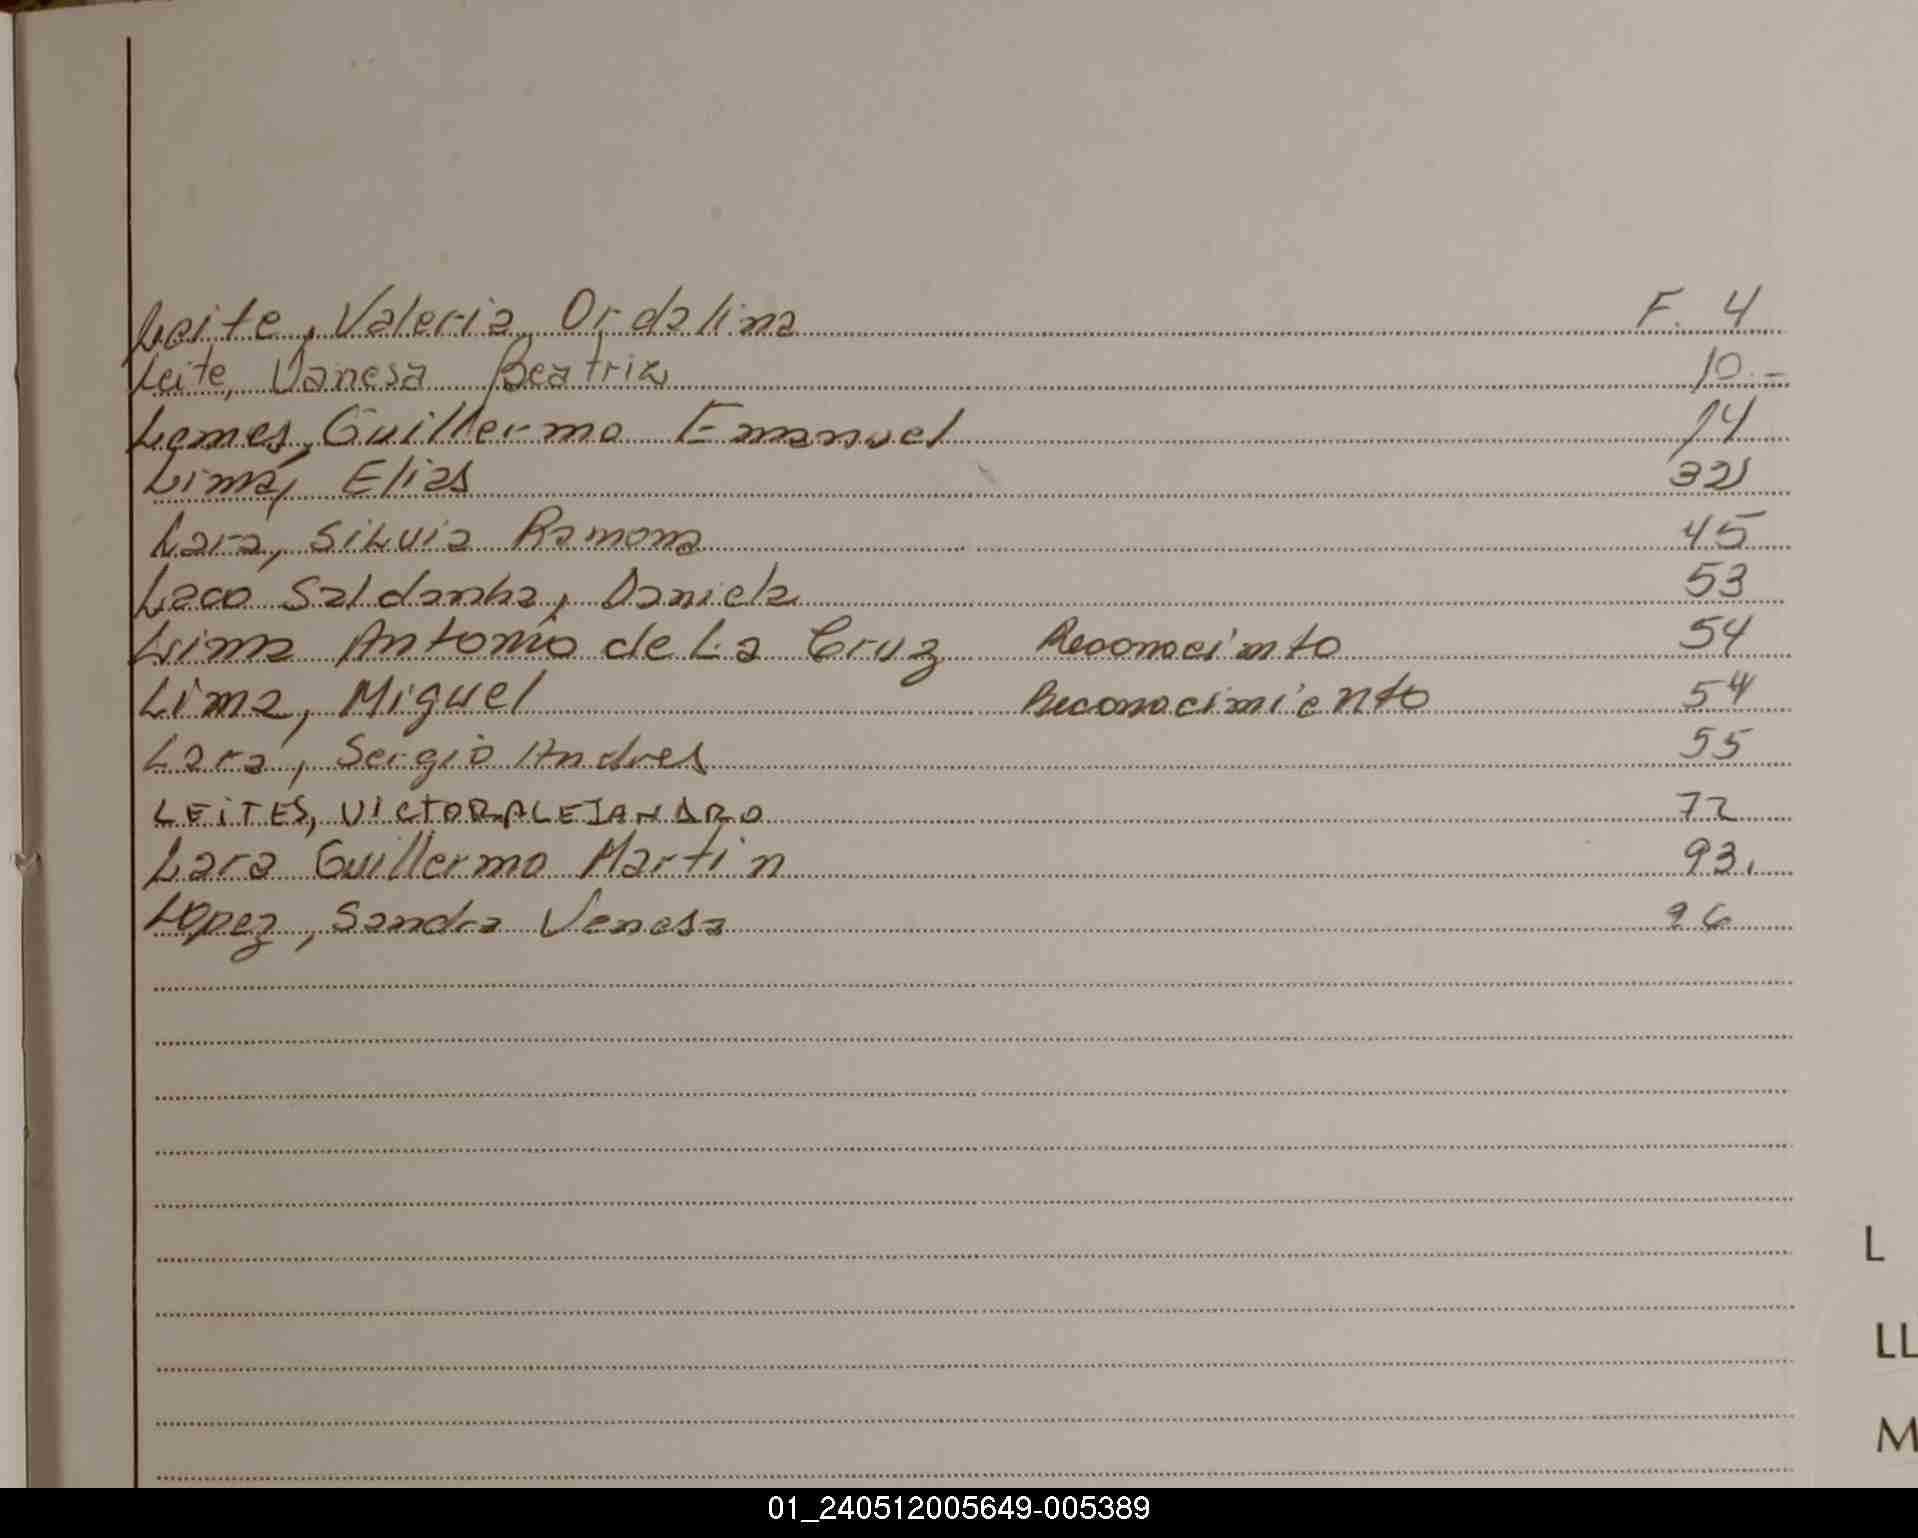 Leite, Valeria Ordalina F. 4
Leite, Vanesa Beatriz 10.-
Lemes, Guillermo Emanuel 14
Lima, Elias 32
Lara, Silvia Ramona 45
Saldanha, Daniela 53
Lima Antonio de La Cruz Reconocimto 54
Lima, Miguel Reconocimiento 54
Lara, Sergio Andres 55
LEiTES, VICTOR ALEJANDRO 72
Lara Guillermo Martin 93.
Lopez, Sandra Venesa 96
L
LL
M
01_240512005649-005389